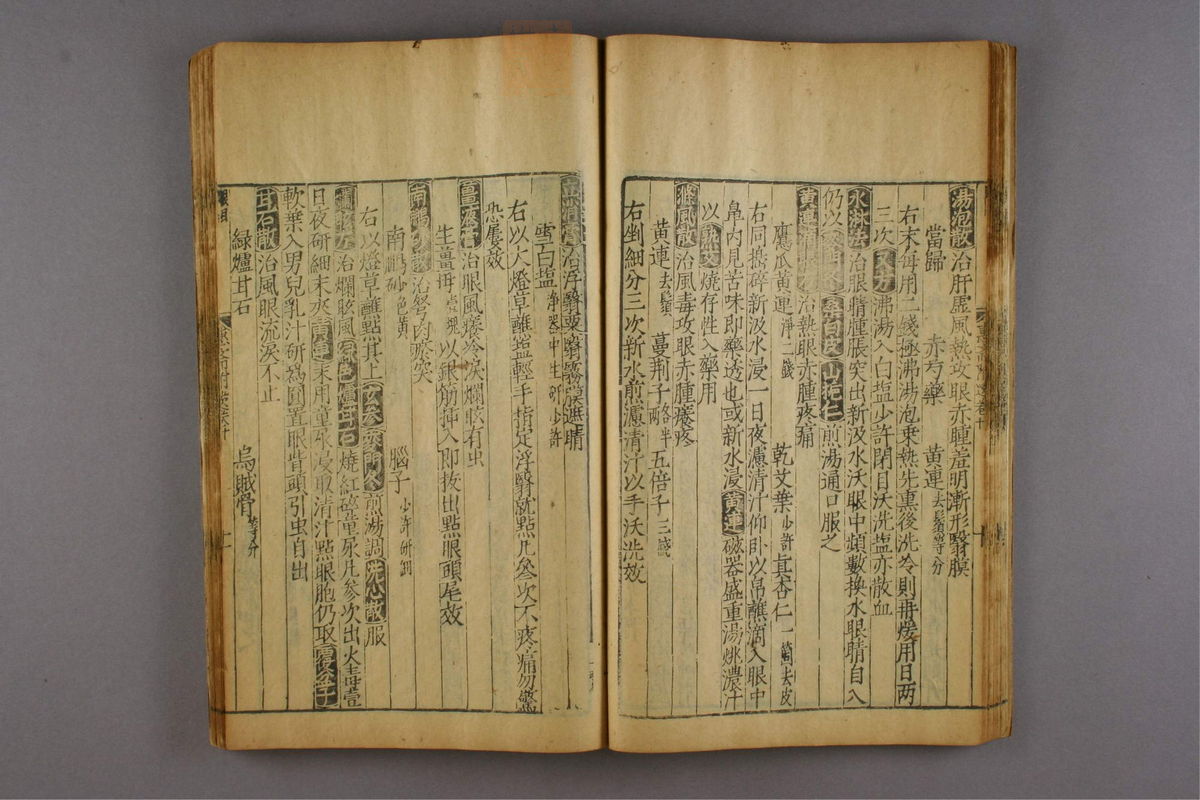 湯泡散治肝虛風熱攻眼赤腫羞明漸形瞖膜
當歸 赤芍藥 黄連去鬚等分
右末每用二錢極沸湯泡乗熱先熏後洗冷則再煖用日两
三次又方沸湯入白塩少許閉目沃洗塩亦散血
水淋法治眼睛腫脹突出新汲水沃眼中頻數換水眼睛自入
仍以麥門冬桑白皮山梔仁煎湯通口服之
黄連膏治熱眼赤腫疼痛
鷹瓜黄連淨二錢 乾艾葉少許 真杏仁一箇去皮
右同擣碎新汲水浸一日夜濾清汁仰卧以帛蘸滴入眼中
鼻内見苦味即藥透也或新水浸黄連磁器盛重湯煠濃汁
以熟艾燒存性入藥用
滌風散治風毒攻眼赤腫癢疼
黄連去鬚 蔓荆子各半两 五倍子三錢
右剉細分三次新水煎濾清汁以手沃洗效
治浮瞖粟瞖霧膜遮睛
雪白塩淨器中生研少許
右以大燈草蘸塩輕手指定浮瞖就點凡叄次不疼痛勿驚
恐屢效
薑液膏治眼風癢冷淚爛眩有虫
生薑母壹塊以銀筯揷入即抜出點眼頭尾效
南硼砂散治弩肉瘀突
南鵬砂色黄 腦子少許研細
右以燈草蘸點其上玄參麥門冬煎湯調洗心散服
治爛眩風緑色爐甘石燒紅磁童尿凡參次出火毒壹
日夜研細末夾黄連末用童尿浸取清汁點眼胞仍取覆盆子
軟葉入男兒乳汁研爲圓置眼眥頭引虫自出
甘石散治風眼流淚不止
緑爐甘石 烏賊骨等分